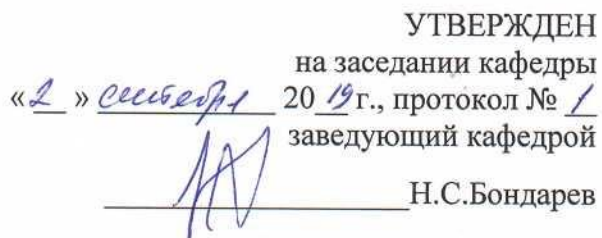 УТВЕРЖДЕН
на заседании кафедры
«2» сентября 2019г., протокол № 1
заведующий кафедрой
Н.С.Бондарев